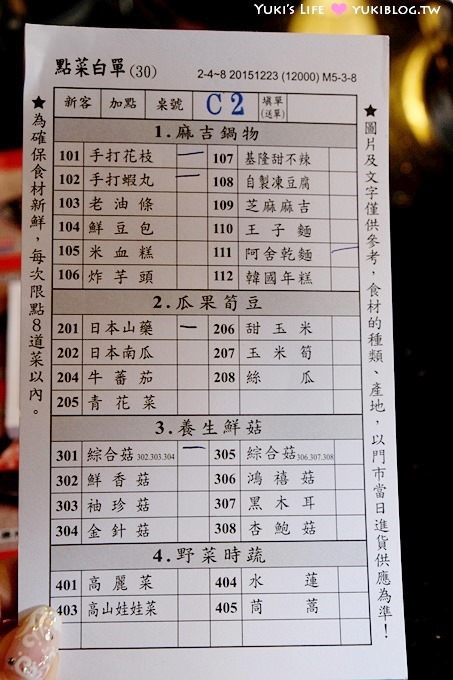 YUKI'S LIFE YUKIBLOG.TW
點菜白單(30) 2-4~8 20151223 (12000) M5-3-8
新客 加點 桌號 C2 填單(送單)
★為確保食材新鮮，每次限點8道菜以內。
1.麻吉鍋物
101 手打花枝 一 107 基隆甜不辣
102 手打蝦丸 一 108 自製凍豆腐
103 老油條 109 芝麻麻吉
104 鮮豆包 110 王子麵
105 米血糕 111 阿舍乾麵 一
106 炸芋頭 112 韓國年糕
2.瓜果筍豆
201 日本山藥 一 206 甜玉米
202 日本南瓜 207 玉米筍
204 牛蕃茄 208 絲瓜
205 青花菜
3.養生鮮菇
301 綜合菇302.303.304 一 305 綜合菇306.307.308
302 鮮香菇 306 鴻禧菇
303 袖珍菇 307 黑木耳
304 金針菇 308 杏鮑菇
4.野菜時蔬
401 高麗菜 404 水蓮
403 高山娃娃菜 405 茼蒿
★圖片及文字僅供參考，食材的種類、產地，以門市當日進貨供應為準！